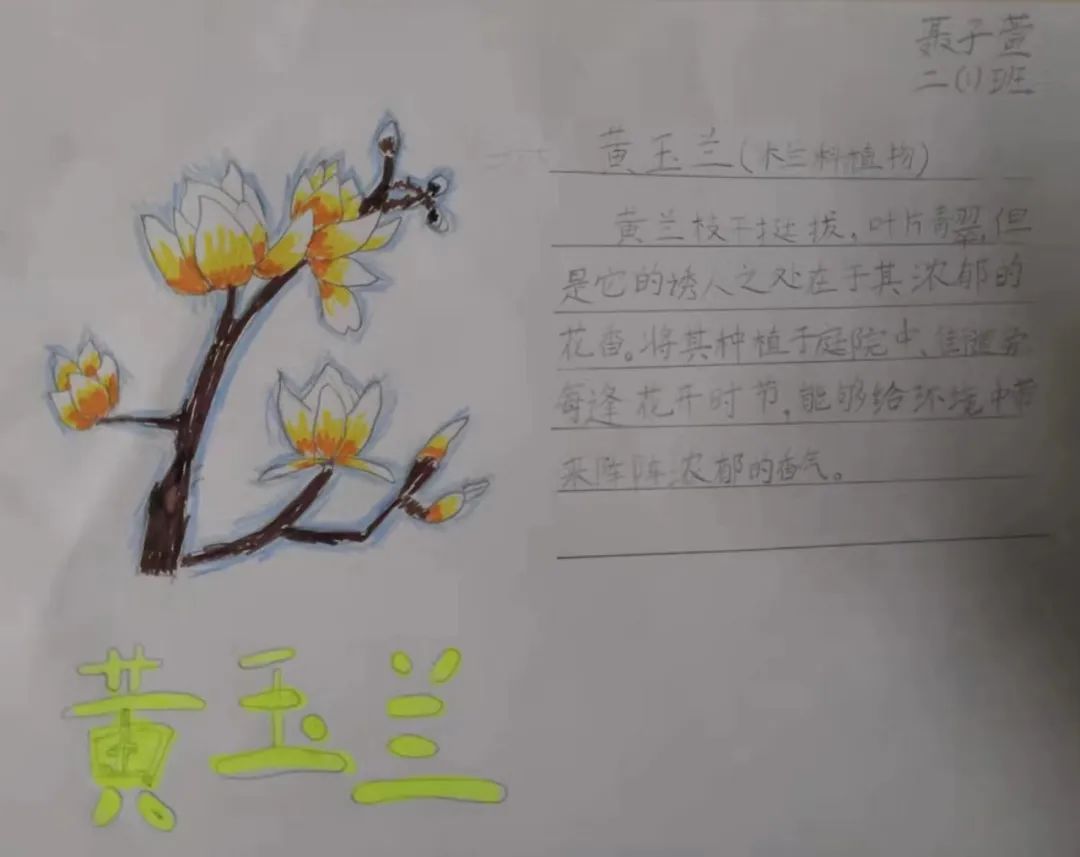 聂子萱
二(1)班
黄玉兰(木兰科植物)
黄兰枝干挺拔,叶片青翠,但
是它的诱人之处在于其浓郁的
花香。将其种植于庭院中、
每逢花开时节,能够给环境中带
来阵阵浓郁的香气。
黄玉兰